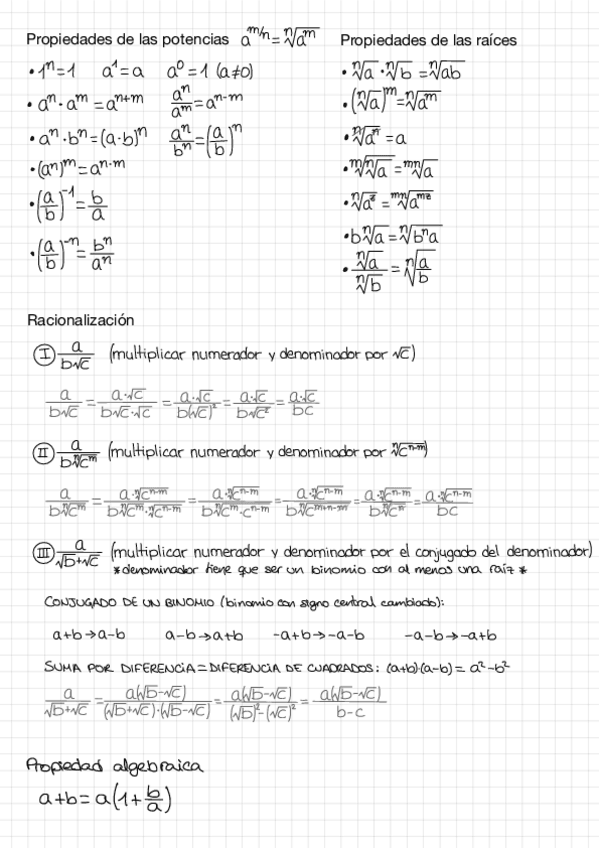 Propiedades de las potencias a^(m/n) = ⁿ√(a^m)
• 1^n = 1 a^1 = a a^0 = 1 (a≠0)
• a^n · a^m = a^(n+m) a^n/a^m = a^(n-m)
• a^n · b^n = (a·b)^n a^n/b^n = (a/b)^n
• (a^n)^m = a^(n·m)
• (a/b)^(-1) = b/a
• (a/b)^(-n) = b^n/a^n
Propiedades de las raíces
• ⁿ√a · ⁿ√b = ⁿ√(ab)
• (ⁿ√a)^m = ⁿ√(a^m)
• ⁿ√(a^n) = a
• ᵐ√(ⁿ√a) = ᵐⁿ√a
• ⁿ√(a^z) = ᵐⁿ√(a^(mz))
• b ⁿ√a = ⁿ√(b^n a)
• ⁿ√a / ⁿ√b = ⁿ√(a/b)
Racionalización
Ⓘ a/(b√c) (multiplicar numerador y denominador por √c)
a/(b√c) = (a·√c)/(b√c·√c) = (a·√c)/(b(√c)²) = (a·√c)/(b√c²) = (a·√c)/(bc)
II a/(b ⁿ√(c^m)) (multiplicar numerador y denominador por ⁿ√(c^(n-m)))
a/(b ⁿ√(c^m)) = (a·ⁿ√(c^(n-m)))/(b ⁿ√(c^m)·ⁿ√(c^(n-m))) = (a·ⁿ√(c^(n-m)))/(b ⁿ√(c^m·c^(n-m))) = (a·ⁿ√(c^(n-m)))/(b ⁿ√(c^(m+n-m))) = (a·ⁿ√(c^(n-m)))/(b ⁿ√(c^n)) = (a·ⁿ√(c^(n-m)))/(bc)
III a/(√b+√c) (multiplicar numerador y denominador por el conjugado del denominador)
*denominador tiene que ser un binomio con al menos una raíz*
CONJUGADO DE UN BINOMIO (binomio con signo central cambiado):
a+b→a-b a-b→a+b -a+b→-a-b -a-b→-a+b
SUMA POR DIFERENCIA = DIFERENCIA DE CUADRADOS: (a+b)(a-b) = a²-b²
a/(√b+√c) = a(√b-√c)/((√b+√c)·(√b-√c)) = a(√b-√c)/((√b)²-(√c)²) = a(√b-√c)/(b-c)
Propiedad algebraica
a+b = a(1+b/a)